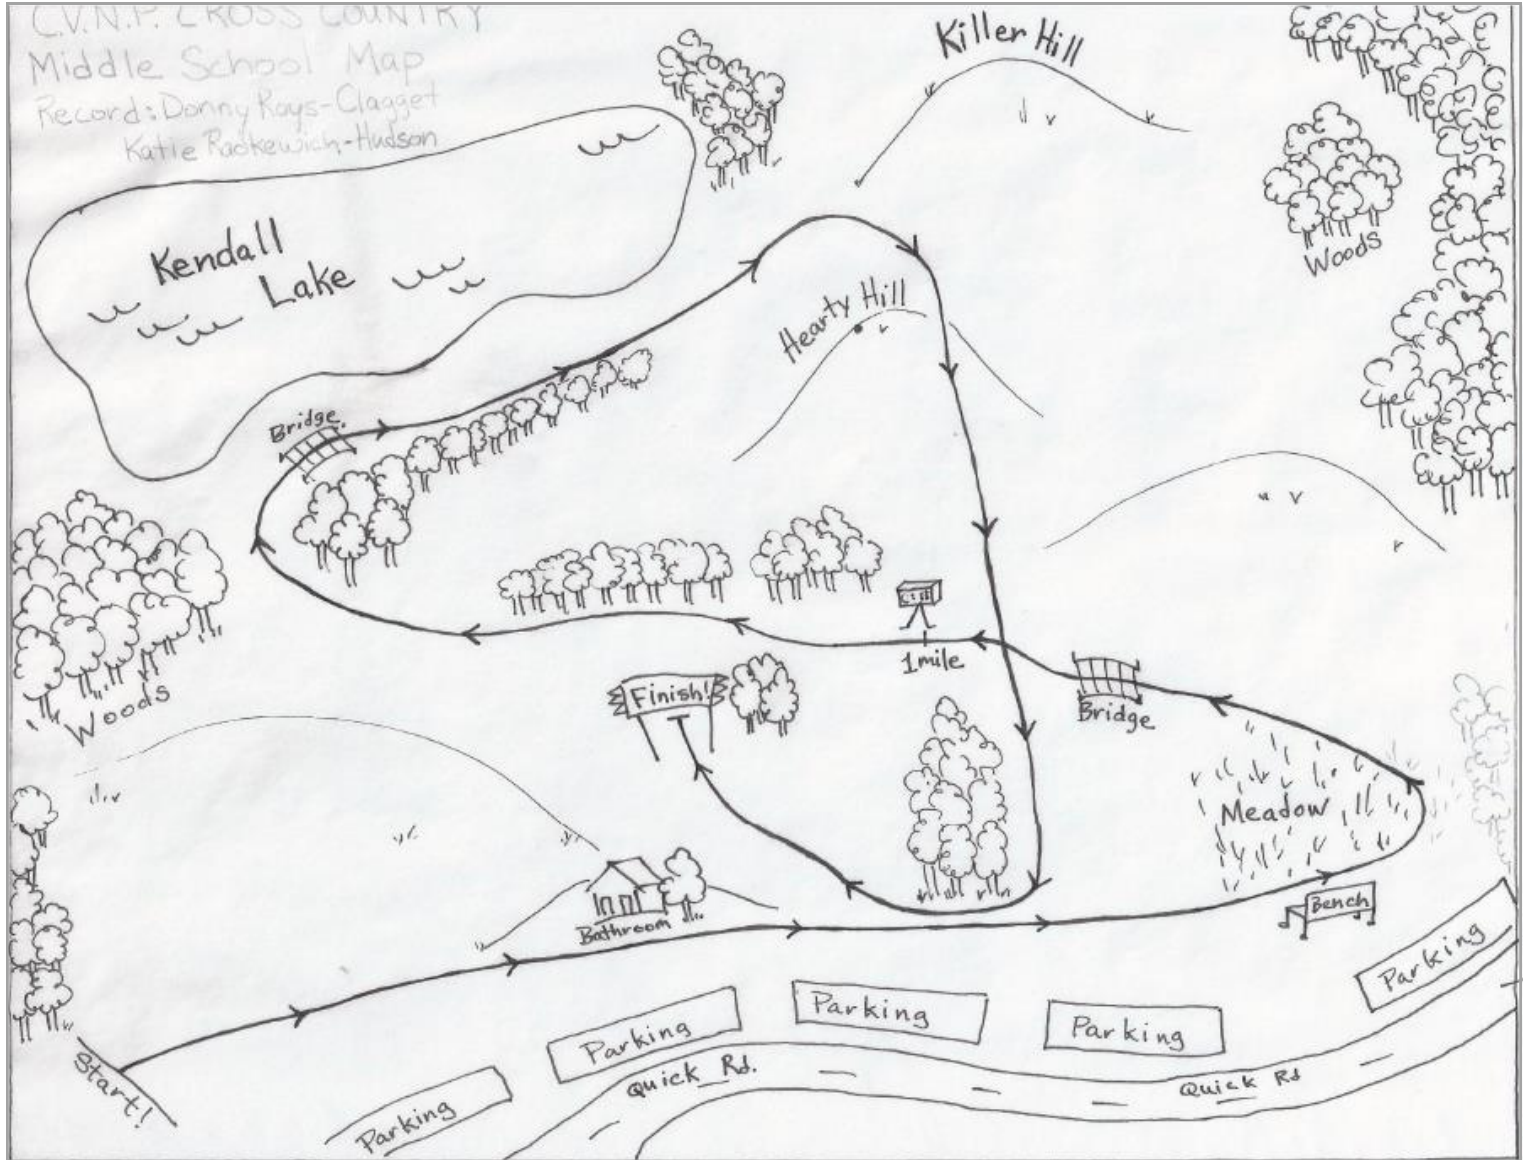 C.V.N.P. CROSS COUNTRY
Middle School Map
Record: Donny Roys-Clagget
Katie Radkewich-Hudson
Killer Hill
Kendall
Lake
Woods
Hearty Hill
Bridge
1 mile
Woods
Finish!
Bridge
Meadow
Bathroom
Bench
Parking
Parking
Parking
Parking
Start!
Quick Rd.
Quick Rd
Parking